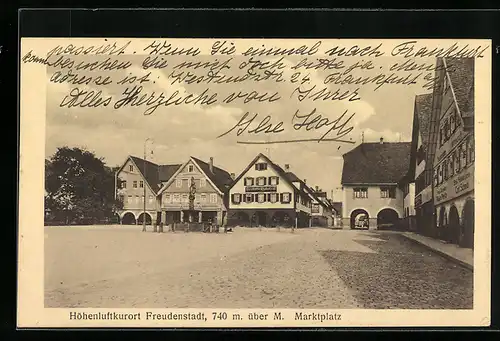 passiert. Wenn Sie einmal nach Frankfurt
kommen besuchen Sie mich doch bitte ja. meine
adresse ist Westendstr 24 Frankfurt a M
Alles Herzliche von Ihrer
Ilse Hoff
Höhenluftkurort Freudenstadt, 740 m. über M. Marktplatz